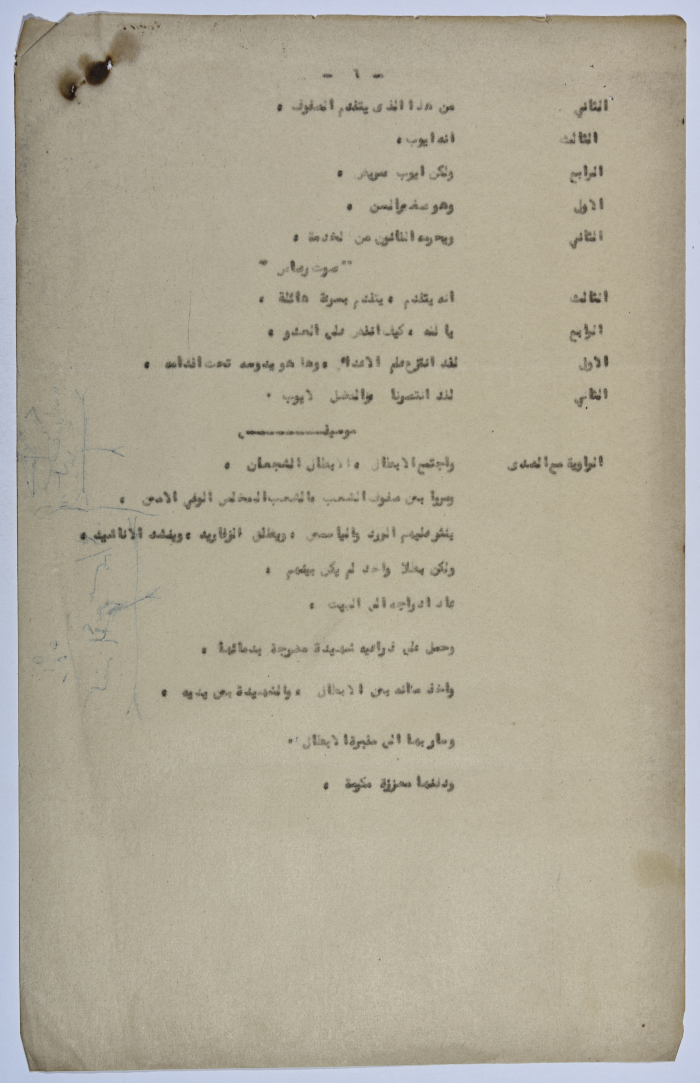 - ٦ -
الثاني من هذا الذى يتقدم الصفوف ؟
الثالث انه ايوب ؟
الرابع ولكن ايوب مريض ،
الاول وهو صغير السن ،
الثاني ويحرمه القانون من الخدمة ،
" صوت رصاص "
الثالث انه يتقدم ، يتقدم بسرعة هائلة ،
الرابع يا لله ، كيف انقض على العدو ،
الاول لقد انتزع علم الاعداء ، وها هو يدوسه تحت اقدامه ،
الثاني لقد انتصرنا والفضل لايوب .
موسيقـــــــــــى
الراوية مع الصدى واجتمع الابطال ، الابطال الشجعان ،
ومروا بين صفوف الشعب ، الشعب المخلص الوفي الامين ،
ينثر عليهم الورد والياسمين ، ويطلق الزغاريد ، وينشد الاناشيد ،
ولكن بطلا واحد لم يكن بينهم ،
عاد ادراجه الى البيت ،
وحمل على ذراعيه شهيدة مضرجة بدمائها ،
واخذ مكانه بين الابطال ، والشهيدة بين يديه ،
وسار بها الى مقبرة الابطال .
ودفنها معززة مكرمة ،